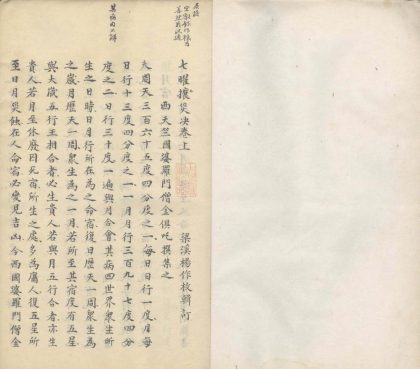 七曜攘災决卷上
梁溪楊作枚輯訂
西天竺國婆羅門僧金俱吒撰集之
大周天三百六十五度四分度之一每日日行一度月每
日行十三度四分度之一一月月行三百九十七度四分
度之二日行三十度一遍與月合會其病四世界衆生所
生之日時日月行所在為之命宿復日歷天一周衆生為
之歲月歷天一周衆生為之一月若所至其宿度有五星
與大歲五行王相合者必生貴人若與月五行合者亦生
貴人若月至休廢囚死宿所生之處多為屬人復五星所
至日月災蝕在人命宿必變見吉凶今西國婆羅門僧金
其病四不解